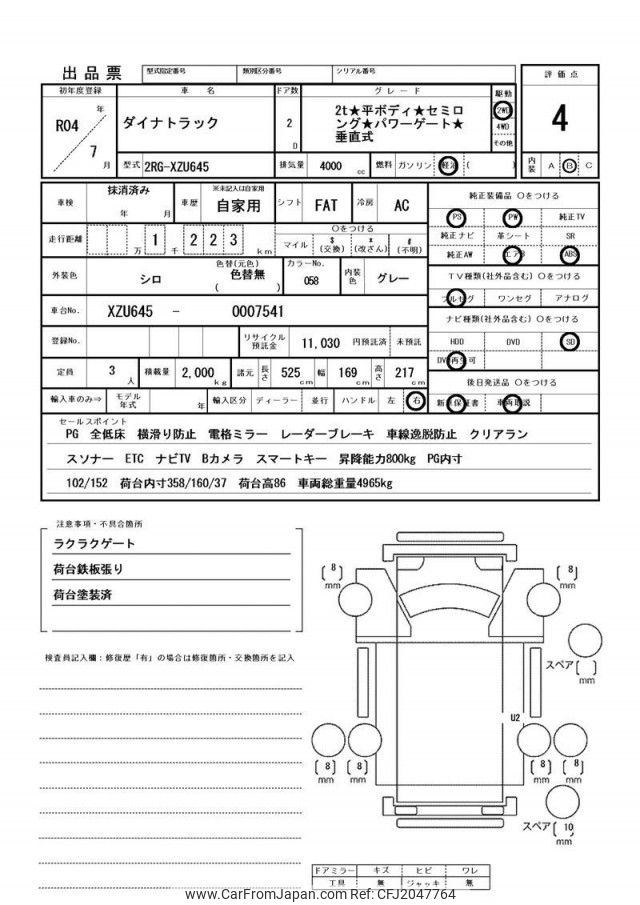 出品票 型式指定番号 類別区分番号 シリアル番号
評価点
4
内装 A B C
初年度登録 車名 ドア数 グレード 駆動
R04 年 7 月
ダイナトラック
2 D
2t★平ボディ★セミロ
ング★パワーゲート★
垂直式
2WD
4WD
その他
型式 2RG-XZU645 排気量 4000 cc 燃料 ガソリン 軽油 ( )
車検 抹消済み 年 月 車歴 ※未記入は自家用 自家用 シフト FAT 冷房 AC
走行距離 万 1 千 2 2 3 km
○をつける
マイル $ (交換) * (改ざん) # (不明)
外装色 シロ 色替(元色) 色替無 ( ) カラーNo. 058 内装色 グレー
車台No. XZU645 - 0007541
登録No. リサイクル預託金 11,030 円預託済 未預託
定員 3 人 積載量 2,000 kg 諸元 長さ 525 cm 幅 169 cm 高さ 217 cm
輸入車のみ⇒ モデル年式 年 輸入区分 ディーラー 並行 ハンドル 左 右
純正装備品 ○をつける
PS PW 純正TV
純正ナビ 革シート SR
純正AW エアB ABS
TV種類(社外品含む) ○をつける
フルセグ ワンセグ アナログ
ナビ種類(社外品含む) ○をつける
HDD DVD SD
DVD再生可
後日発送品 ○をつける
新車保証書 車両取説
セールスポイント
PG 全低床 横滑り防止 電格ミラー レーダーブレーキ 車線逸脱防止 クリアラン
スソナー ETC ナビTV Bカメラ スマートキー 昇降能力800kg PG内寸
102/152 荷台内寸358/160/37 荷台高86 車両総重量4965kg
注意事項・不具合箇所
ラクラクゲート
荷台鉄板張り
荷台塗装済
検査員記入欄：修復歴「有」の場合は修復箇所・交換箇所を記入
( 8 ) mm
( 8 ) mm
スペア ( ) mm
U2
( 8 ) mm
( 8 ) mm
( 8 ) mm
( 8 ) mm
スペア ( 10 ) mm
ドアミラー キズ ヒビ ワレ
工具 無 ジャッキ 無
www.CarFromJapan.com Ref: CFJ2047764